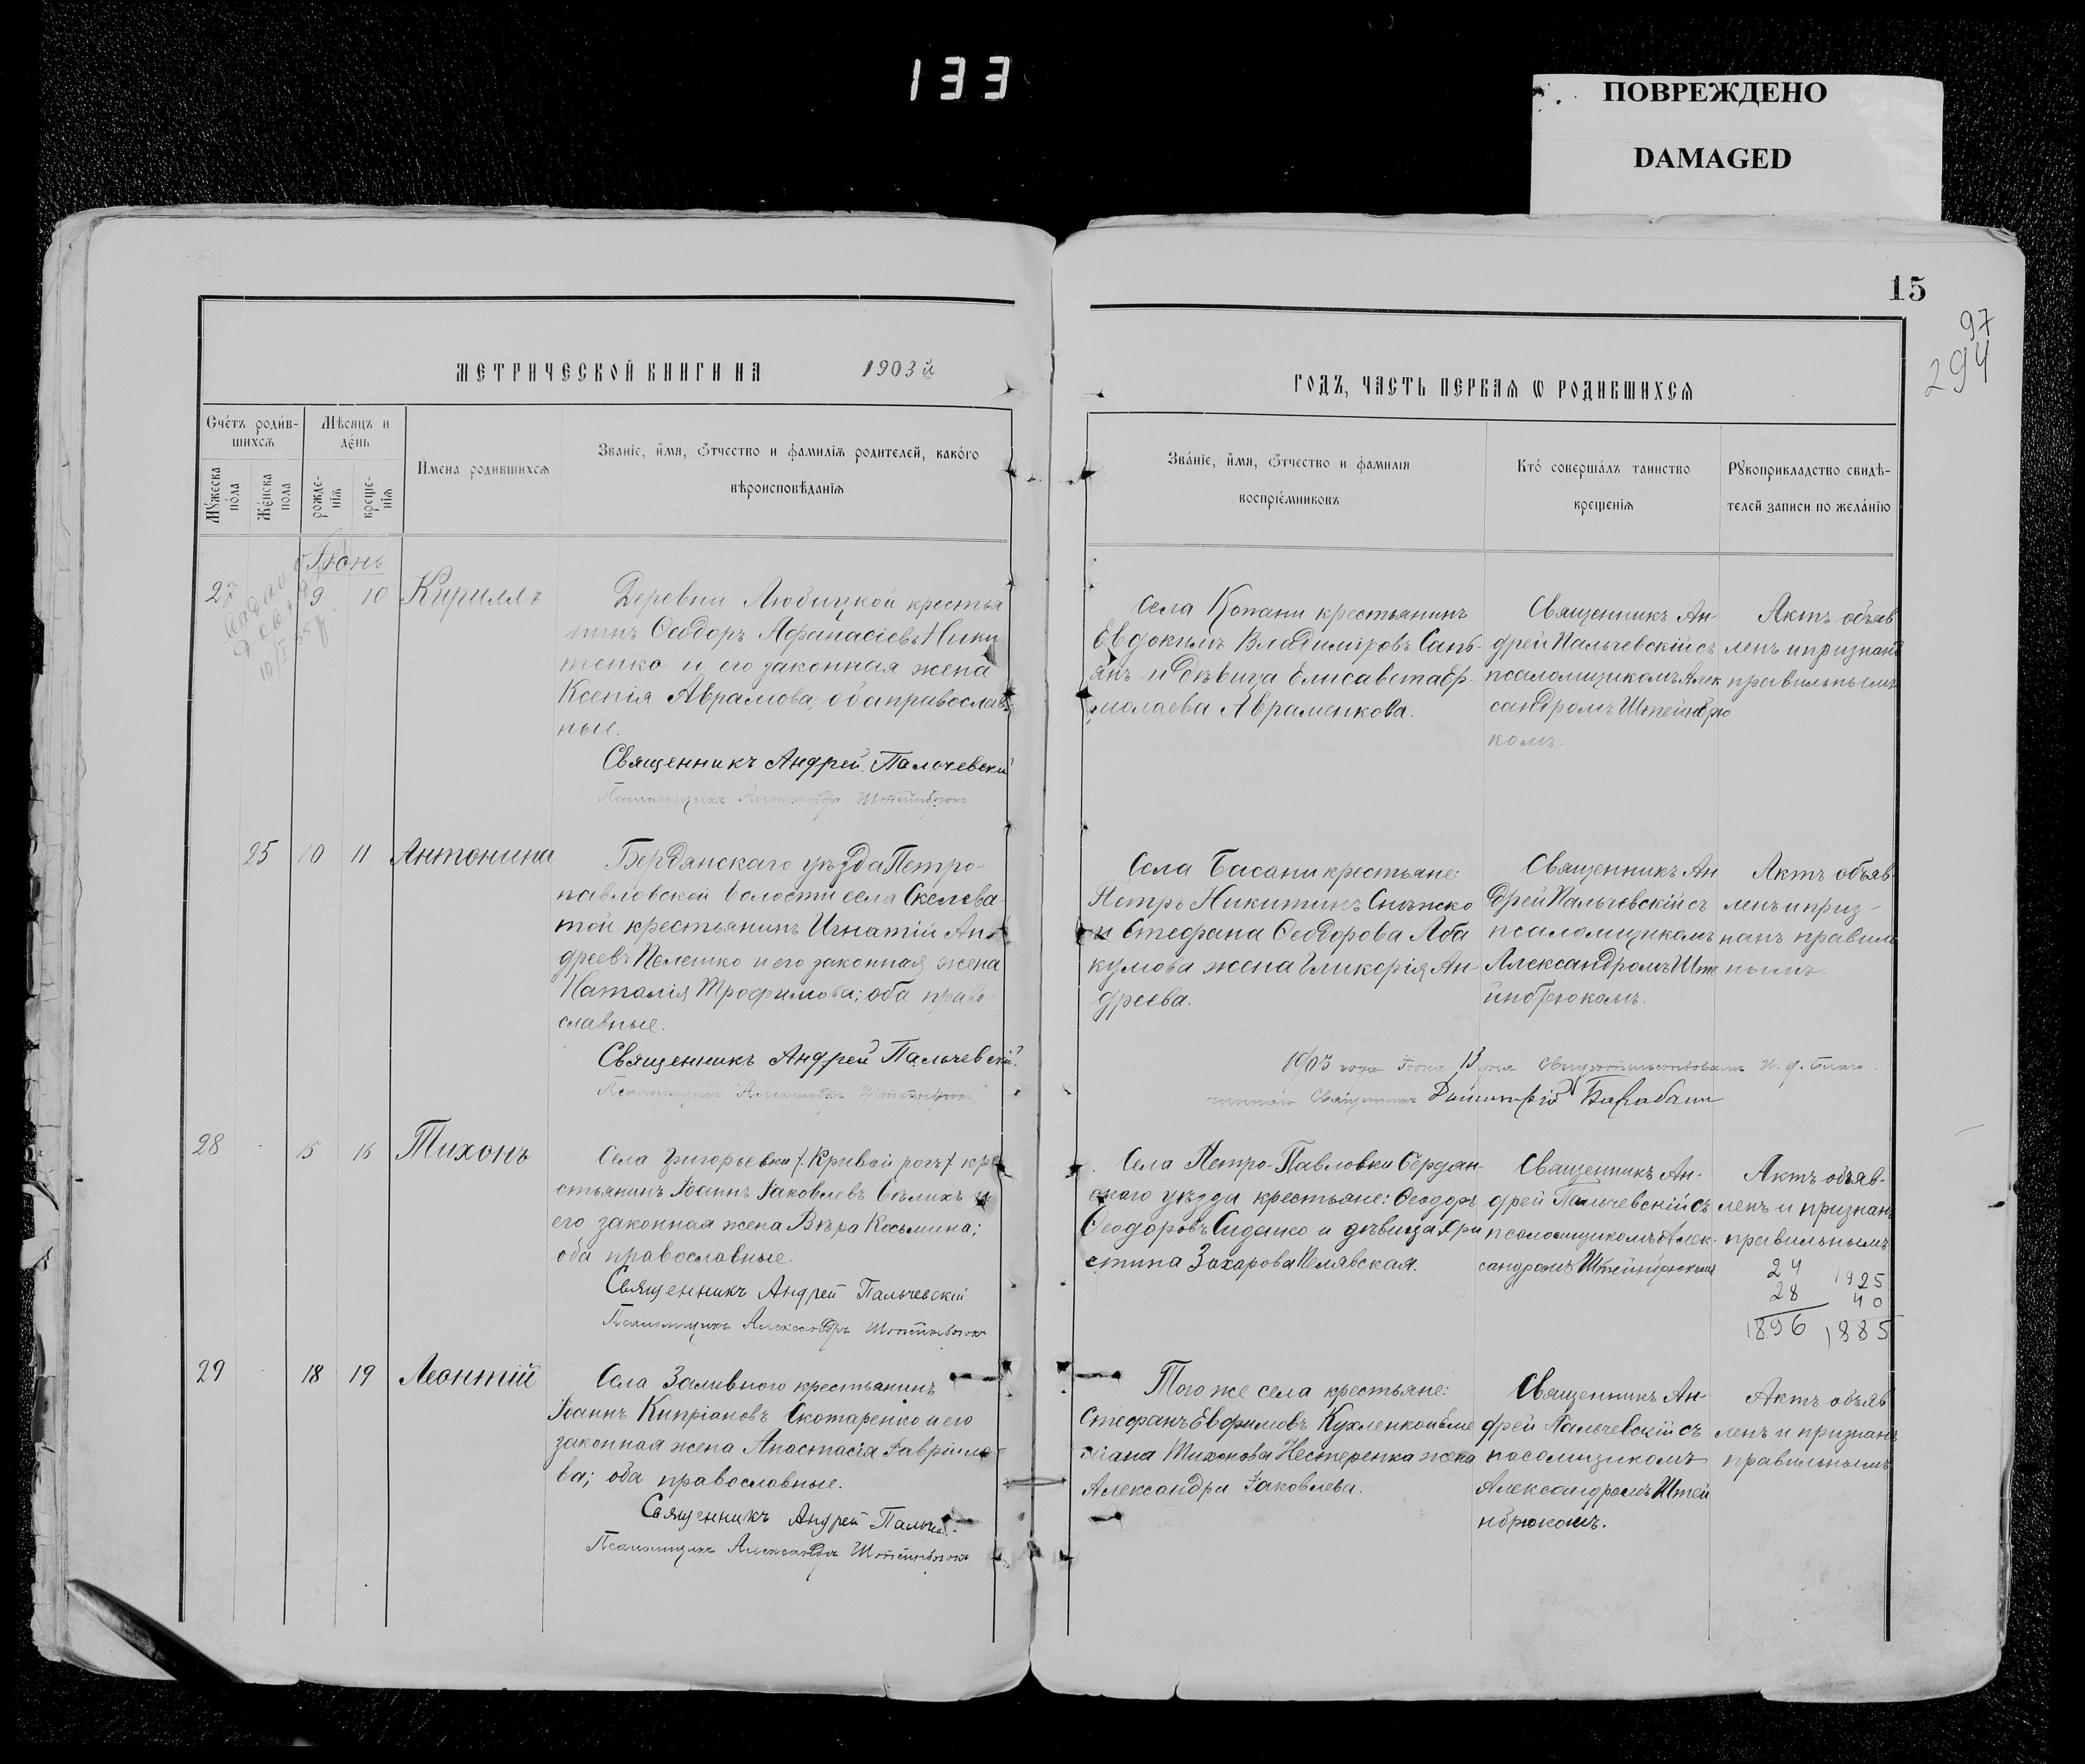 133
ПОВРЕЖДЕНО
DAMAGED
15
97
294
МЕТРИЧЕСКОЙ КНИГИ НА 1903й
ГОДЪ, ЧАСТЬ ПЕРВАЯ Ѡ РОДИВШИХСЯ
Счетъ родив-
шихся
Мѣсяцъ и
день
Мужеска
пола
Женска
пола
рожде-
нія
креще-
нія
Имена родившихся
Званіе, имя, ѿчество и фамилія родителей, какого
вѣроисповѣданія
Званіе, имя, ѿчество и фамилія
воспріемниковъ
Кто совершалъ таинство
крещенія
Рукоприкладство свидѣ-
телей записи по желанію
Іюнь
27 9 10 Кириллъ
Деревни Любицкой крестья
нинъ Ѳеодоръ Аѳанасіевъ Ники
тенко и его законная жена
Ксенія Аврамова; оба православ-
ные.
Священникъ Андрей Пальчевскій
Псаломщикъ Александръ Штейнбрюкъ
Села Копани крестьянинъ
Евдокимъ Владиміровъ Сапь-
янъ и дѣвица Елисавета Ер-
молаева Авраменкова.
Священникъ Ан-
дрей Пальчевскій съ
псаломщикомъ Алек
сандромъ Штейнбрю
комъ.
Актъ объяв
ленъ и признанъ
правильнымъ
25 10 11 Антонина
Бердянскаго уѣзда Петро-
павловской волости села Скелева
той крестьянинъ Игнатій Ан-
дреевъ Пелешко и его законная жена
Наталія Трофимова; оба право
славные.
Священникъ Андрей Пальчевскій.
Псаломщикъ Александръ Штейнбрюкъ
Села Басани крестьяне:
Петръ Никитинъ Снѣжко
и Стефана Ѳеодорова Аба
кумова жена Гликерія Ан-
дреева.
Священникъ Ан
дрей Пальчевскій съ
псаломщикомъ
Александромъ Ште
йнбрюкомъ.
Актъ объяв-
ленъ и приз-
нанъ правиль
нымъ
1903 года Іюня 13 дня свидѣтельствовалъ И. д. Благо
чиннаго Священникъ Димитрій
28 15 16 Тихонъ
Села Григорьевки /. Кривой рогъ /. кре
стьянинъ Іоаннъ Іаковлевъ Бѣликъ и
его законная жена Вѣра Косьмина;
оба православные.
Священникъ Андрей Пальчевскій
Псаломщикъ Александръ Штейнбрюкъ
Села Петро-Павловки Бердян-
скаго уѣзда крестьяне: Ѳеодоръ
Ѳеодоровъ Сиданко и дѣвица Хри
стина Захарова Пелявская.
Священникъ Ан-
дрей Пальчевскій съ
псаломщикомъ Алек-
сандромъ Штейнбрюкомъ
Актъ объяв-
ленъ и признанъ
правильнымъ
24 1925
28 40
1896 1885
29 18 19 Леонтій
Села Заливного крестьянинъ
Іоаннъ Кипріановъ Скотаренко и его
законная жена Анастасія Гавріило-
ва; оба православные.
Священникъ Андрей
Псаломщикъ Александръ Штейнбрюкъ
Того же села крестьяне:
Стефанъ Евфимовъ Кухленко и
Тихонова Нестеренка жена
Александра Іаковлева.
Священникъ Ан-
дрей Пальчевскій съ
псаломщикомъ
Александромъ Штей
нбрюкомъ.
Актъ объяв
ленъ и признанъ
правильнымъ